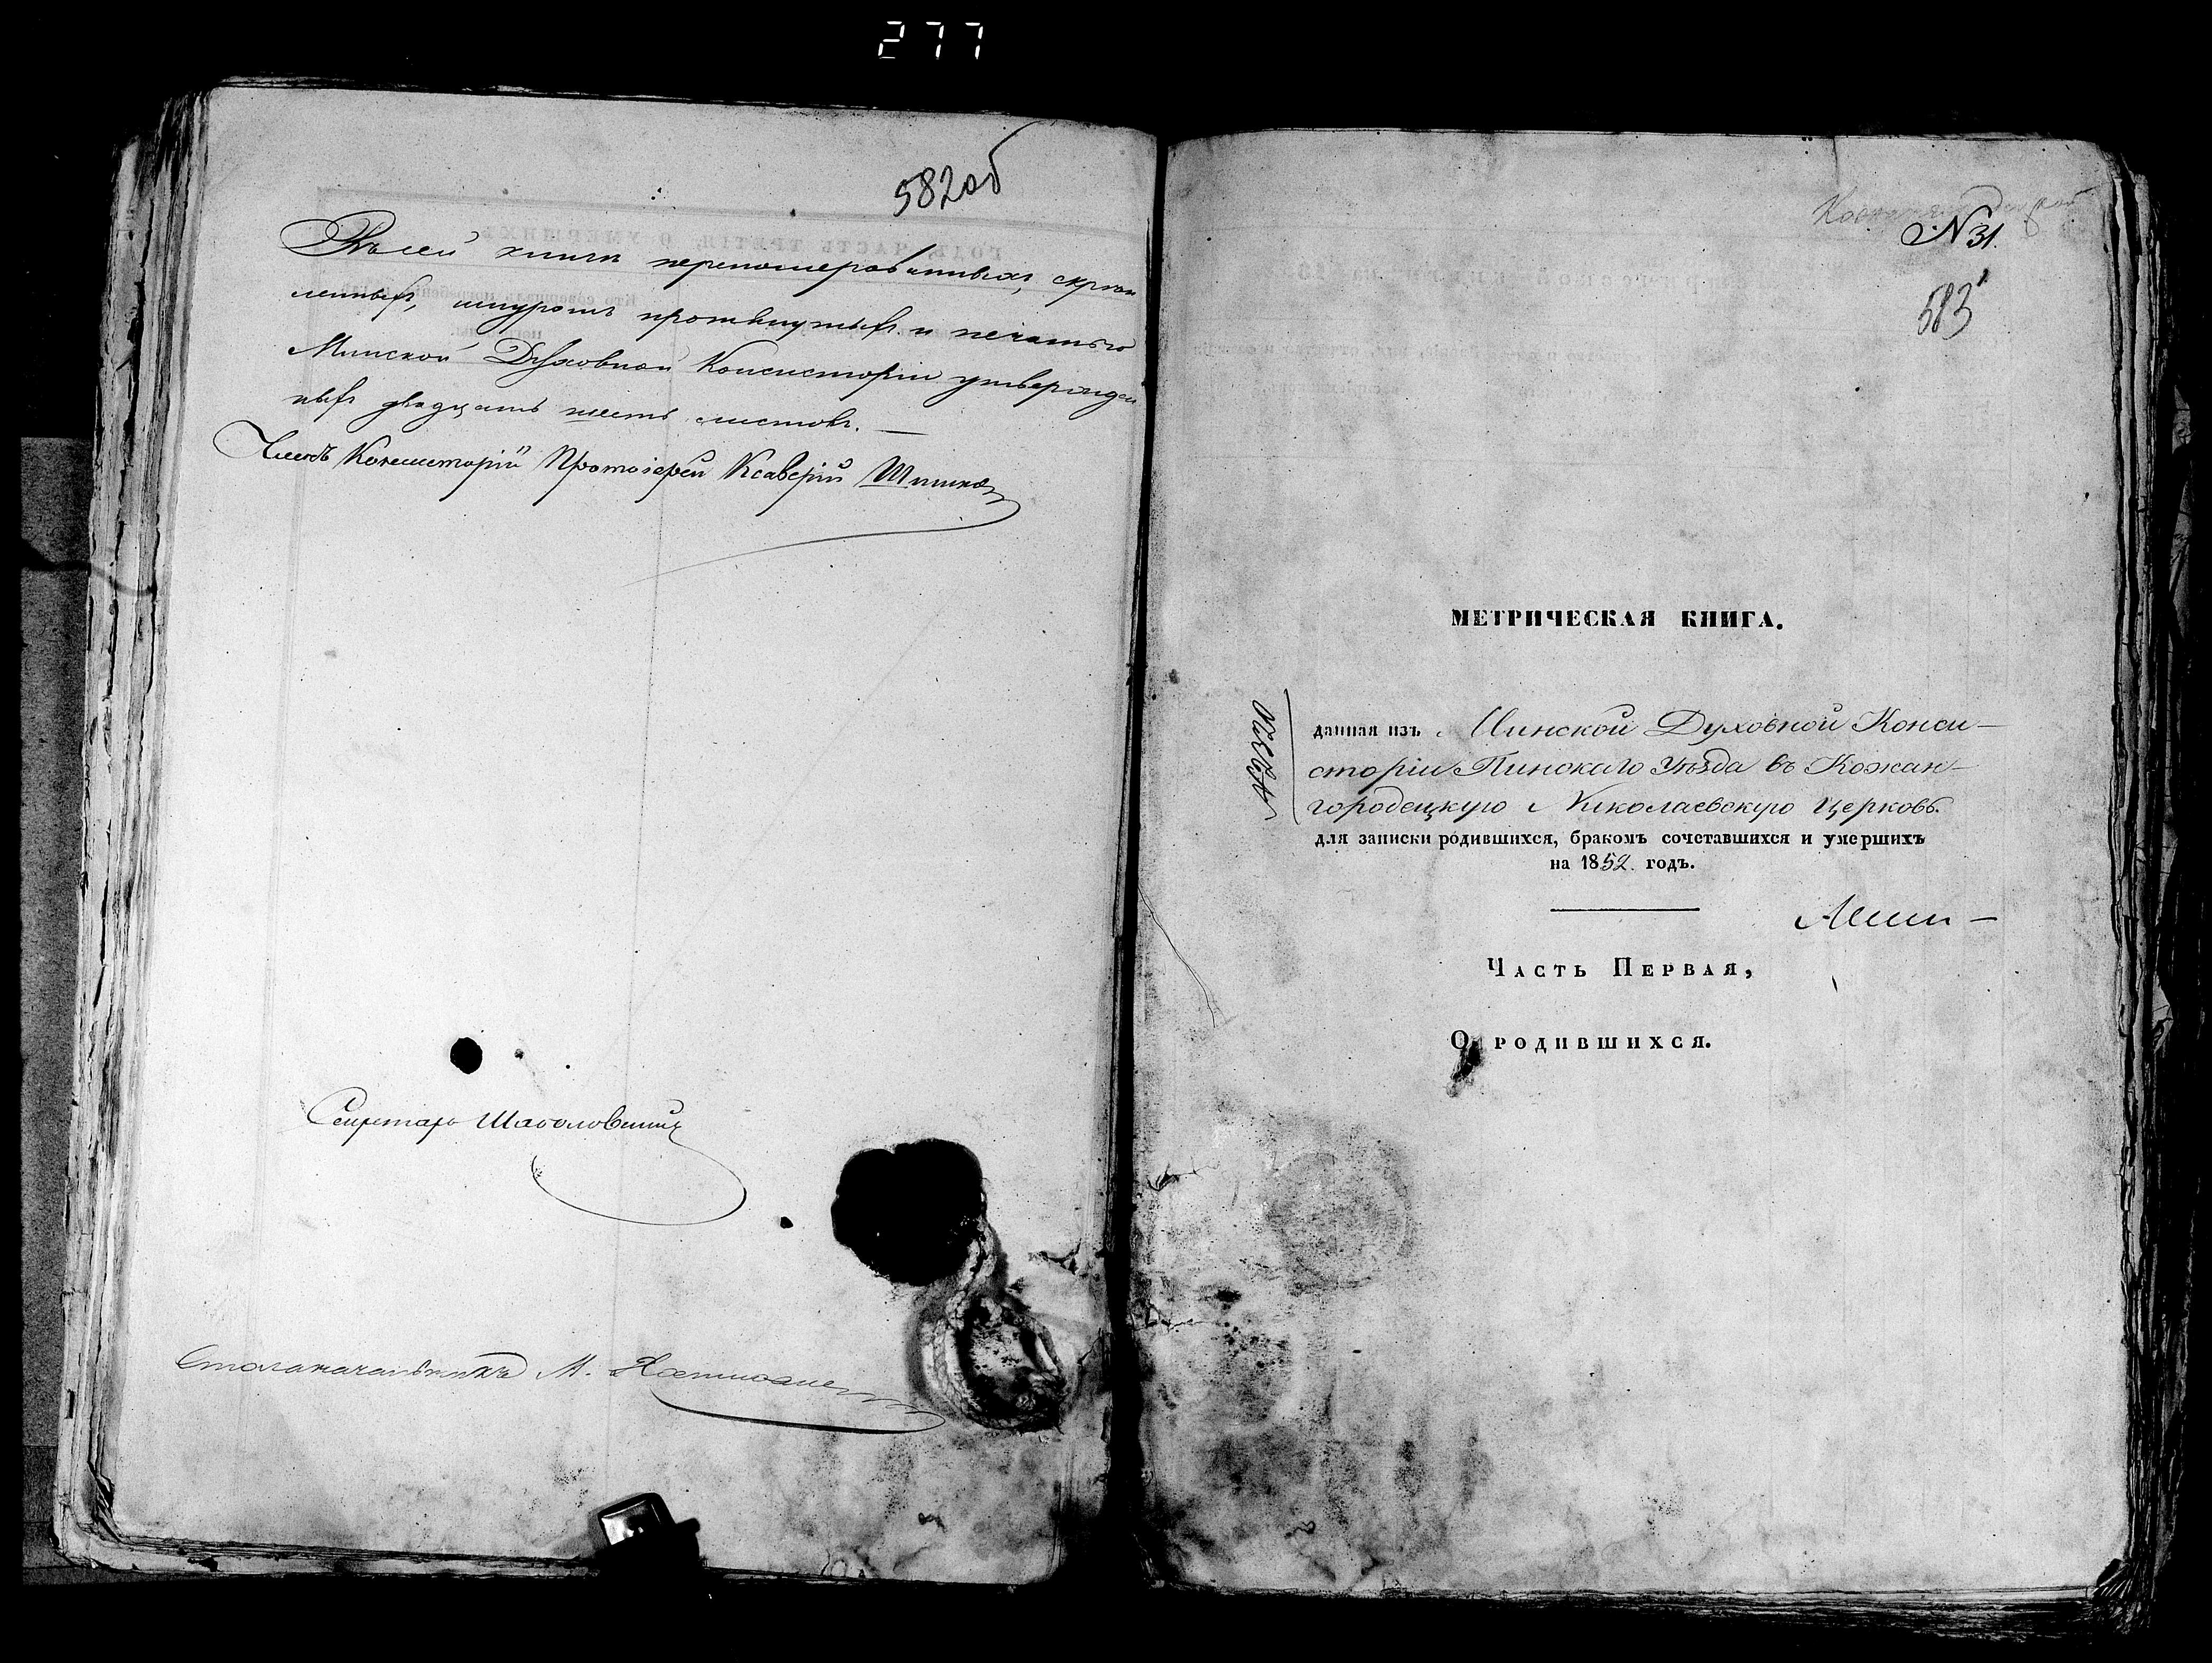 277
582об
Въ сей книги перенумерованныхъ, скреп
ленныхъ, шнуромъ протянутыхъ и печатью
Минской Духовной Консисторіи утвержден
ныхъ двадцать шесть листовъ. —
Членъ Консисторіи Протоіерей Ксаверій
Секретарь
Столоначальникъ М.
N 31.
583
МЕТРИЧЕСКАЯ КНИГА.
данная изъ Минской Духовной Конси-
сторіи Пинскаго Уѣзда въ Кожан-
городецкую Николаевскую Церковь.
для записки родившихся, бракомъ сочетавшихся и умершихъ
на 1852. годъ.
ЧАСТЬ ПЕРВАЯ,
О РОДИВШИХСЯ.